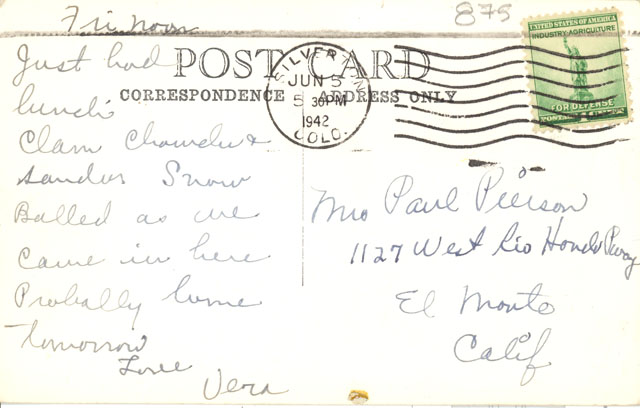 Fri noon
875
Just had
lunch
Clam Chowder &
sandws Snow
Balled as we
came in here
Probably home
tomorrow
Love
Vera
POST CARD
CORRESPONDENCE ADDRESS ONLY
SILVERTON
JUN 5
5 30PM
1942
COLO.
UNITED STATES OF AMERICA
INDUSTRY·AGRICULTURE
FOR DEFENSE
Mrs Paul Pierson
1127 West Rio Hondo Pkway
El Monte
Calif